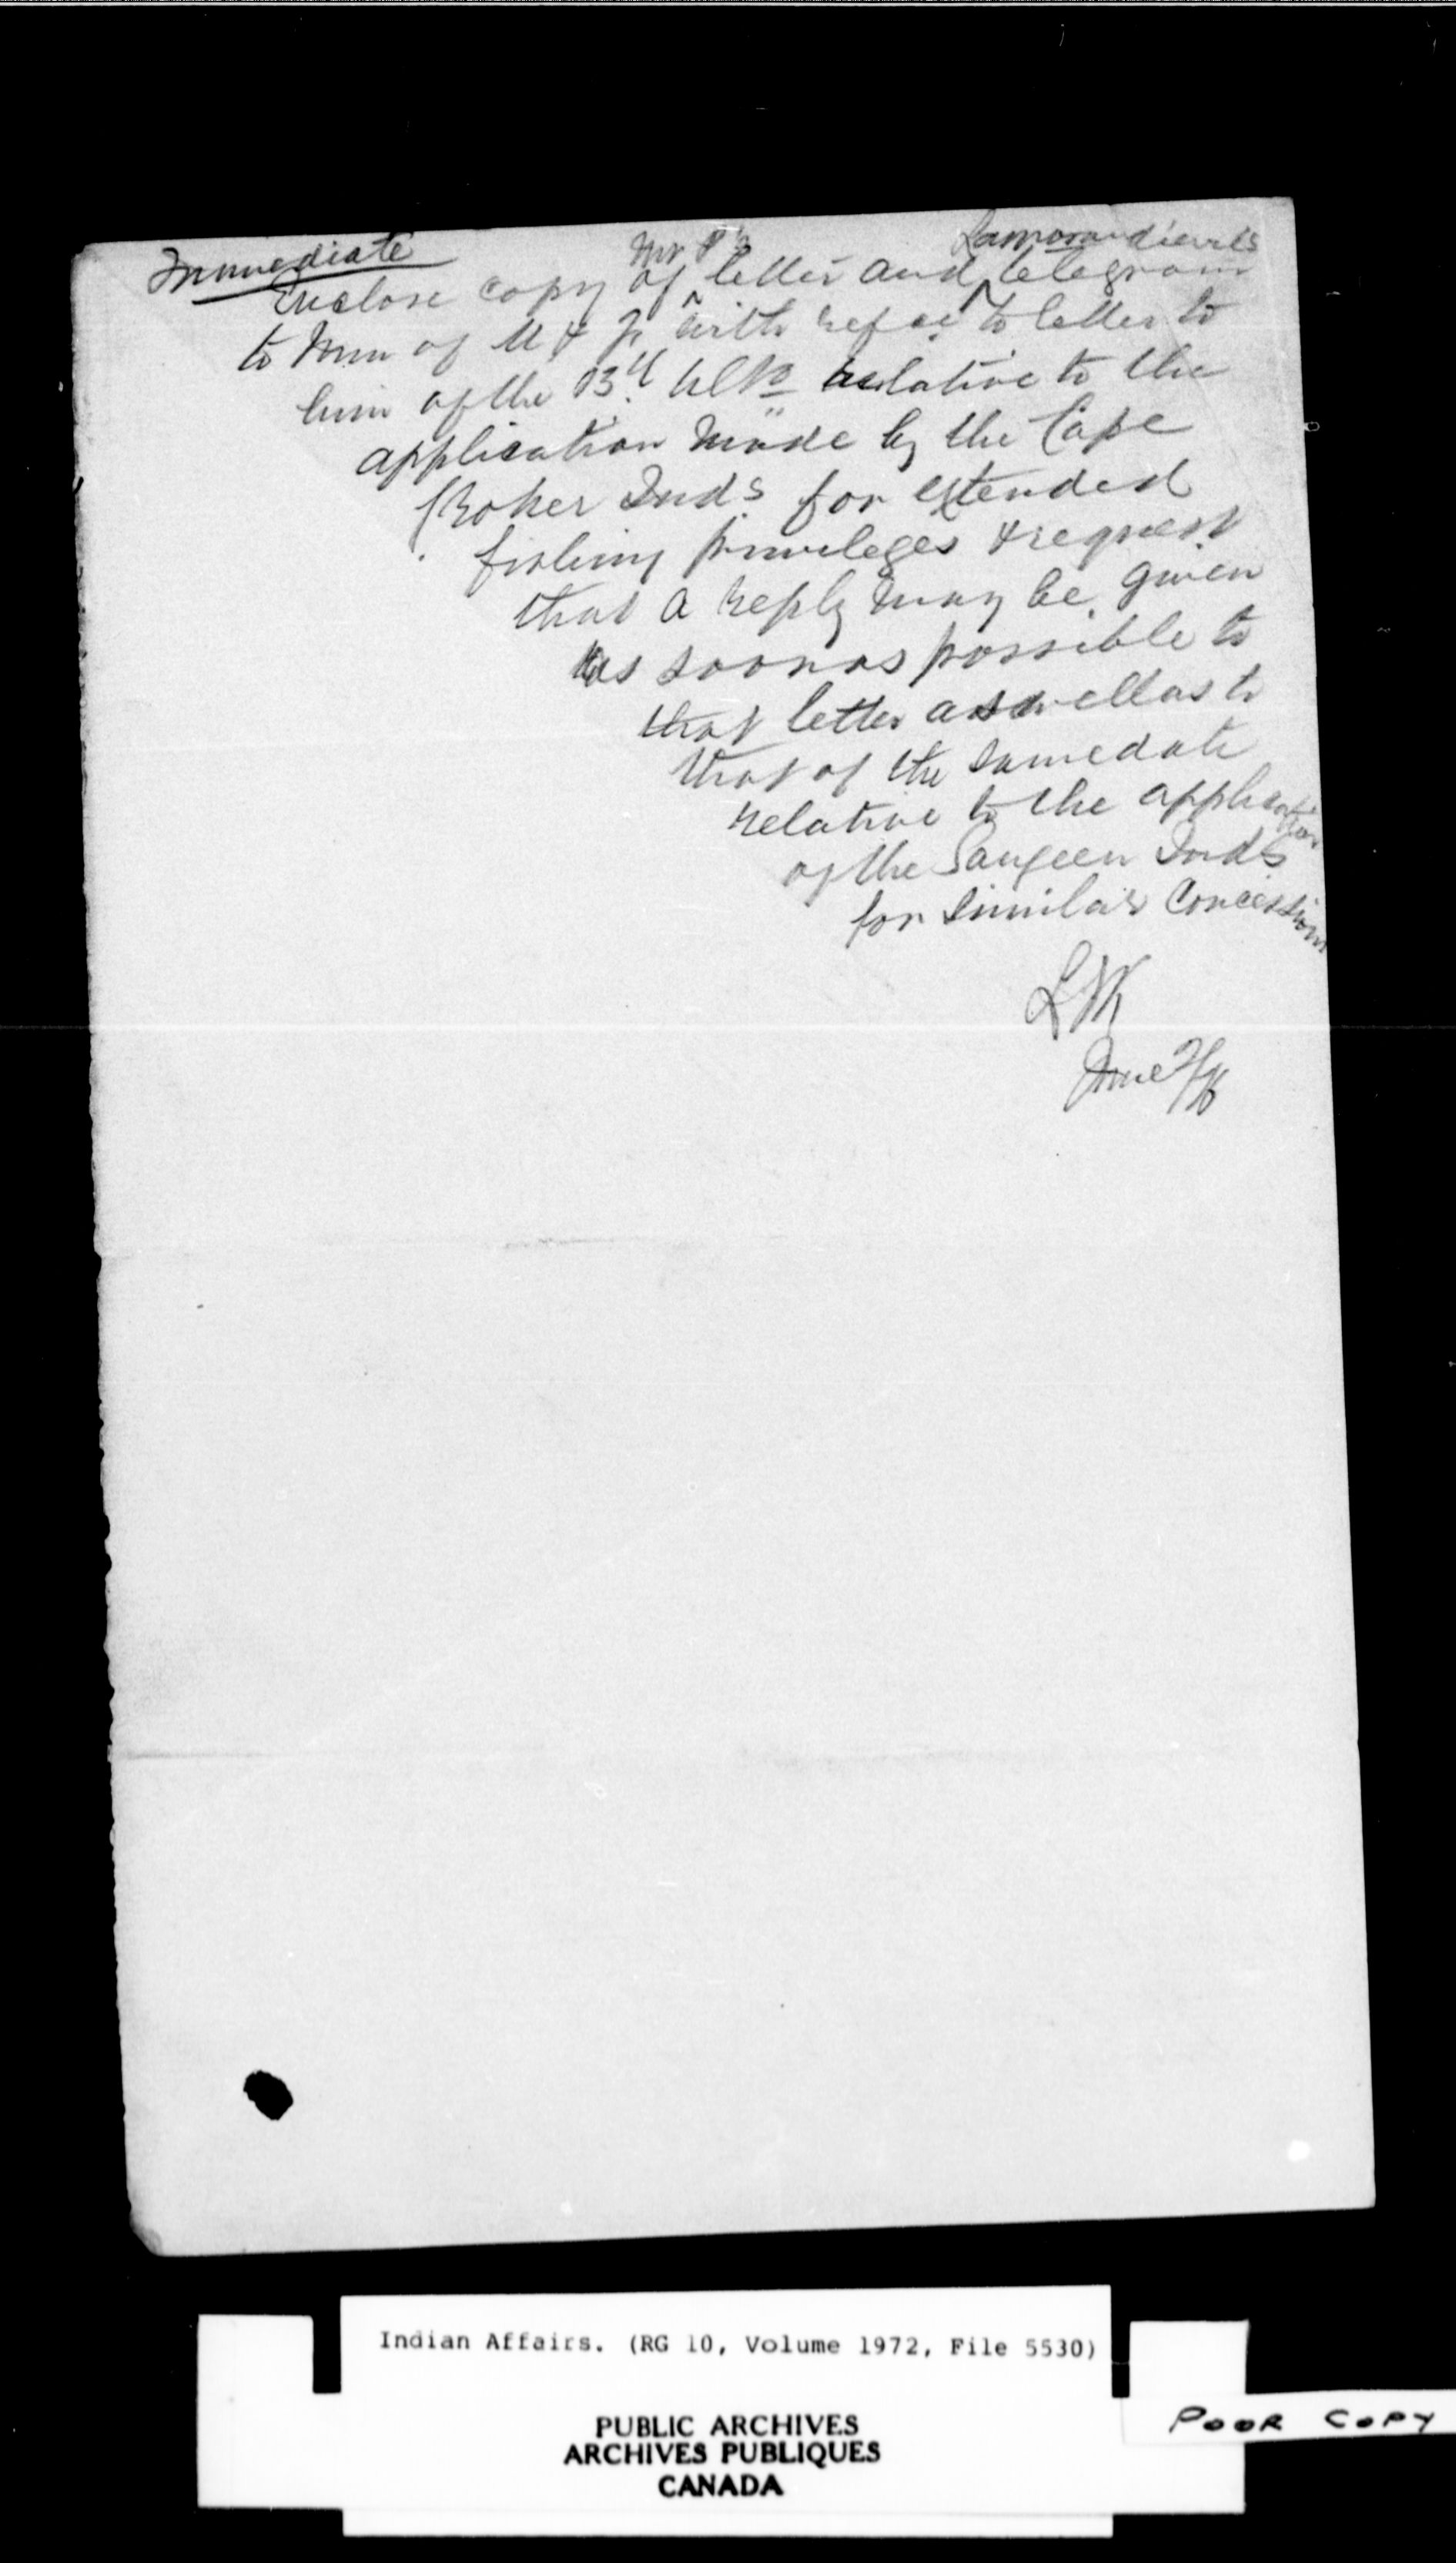 Immediate
Mr P's Lamorandiere's
Enclose copy of ^ letter and ^ telegram
to Min of M & F. with refce. to letter to
him of the 13th ulto relative to the
application made by the Cape
Croker Inds. for extended
fishing privileges & request
that a reply may be given
as soon as possible to
that letter as well as to
that of the same date
relative to the application
of the Saugeen Inds
for similar concessions
LVK
June
Indian Affairs. (RG 10, Volume 1972, File 5530)
PUBLIC ARCHIVES
ARCHIVES PUBLIQUES
CANADA
POOR COPY